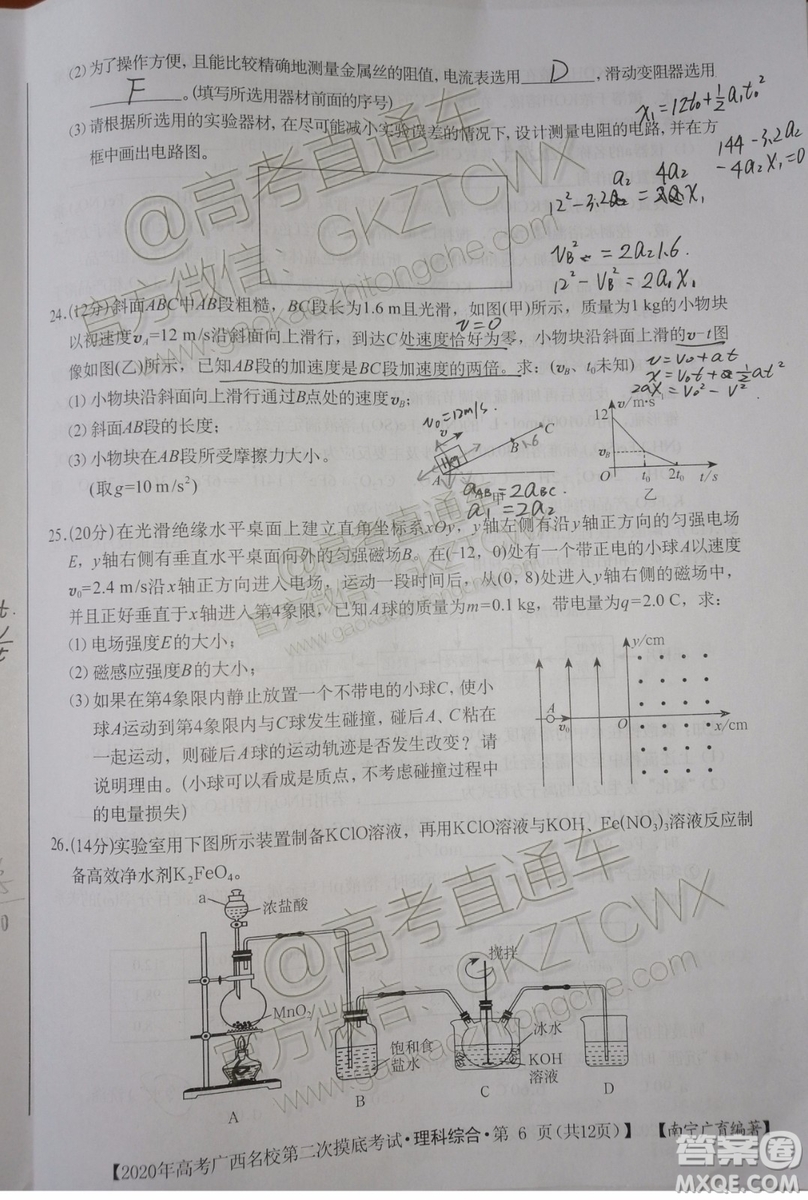 (2)为了操作方便，且能比较精确地测量金属丝的阻值，电流表选用 D ，滑动变阻器选用
F 。(填写所选用器材前面的序号)
x₁=12t₀+½a₁t₀²
(3)请根据所选用的实验器材，在尽可能减小实验误差的情况下，设计测量电阻的电路，并在方
框中画出电路图。
144-3.2a₂
-4a₂x₁=0
a₂ 4a₂
v_B²=2a₂1.6.
12²-v_B²=2a₁x₁
24.(12分)斜面ABC中AB段粗糙，BC段长为1.6 m且光滑，如图(甲)所示，质量为1 kg的小物块
v=0
以初速度v_A=12 m/s沿斜面向上滑行，到达C处速度恰好为零，小物块沿斜面上滑的v-t图
像如图(乙)所示，已知AB段的加速度是BC段加速度的两倍。求：(v_B、t₀未知)
v=v₀+at
x=v₀t+½at²
2ax=v₀²-v²
(1)小物块沿斜面向上滑行通过B点处的速度v_B；
(2)斜面AB段的长度；
(3)小物块在AB段所受摩擦力大小。
(取g=10 m/s²)
v₀=12m/s.
1kg
A
B
C
1.6
甲
a_AB=2a_BC.
a₁=2a₂
v/m·s⁻¹
12
v_B
O
t₀
2t₀
t/s
乙
25.(20分)在光滑绝缘水平桌面上建立直角坐标系xOy，y轴左侧有沿y轴正方向的匀强电场
E，y轴右侧有垂直水平桌面向外的匀强磁场B。在(-12，0)处有一个带正电的小球A以速度
v₀=2.4 m/s沿x轴正方向进入电场，运动一段时间后，从(0，8)处进入y轴右侧的磁场中，
并且正好垂直于x轴进入第4象限，已知A球的质量为m=0.1 kg，带电量为q=2.0 C，求：
(1)电场强度E的大小；
(2)磁感应强度B的大小；
(3)如果在第4象限内静止放置一个不带电的小球C，使小
球A运动到第4象限内与C球发生碰撞，碰后A、C粘在
一起运动，则碰后A球的运动轨迹是否发生改变？请
说明理由。(小球可以看成是质点，不考虑碰撞过程中
的电量损失)
y/cm
A
v₀
O
x/cm
26.(14分)实验室用下图所示装置制备KClO溶液，再用KClO溶液与KOH、Fe(NO₃)₃溶液反应制
备高效净水剂K₂FeO₄。
a
浓盐酸
MnO₂
A
饱和食
盐水
B
搅拌
冰水
KOH
溶液
C
D
【2020年高考广西名校第二次摸底考试·理科综合·第 6 页(共12页)】 【南宁广育编著】
@高考直通车
官方微信：GKZTCWX
www.gaokaozhitongche.com
@高考直通车
官方微信：GKZTCWX
www.gaokaozhitongche.com
答案圈
MXQE.COM